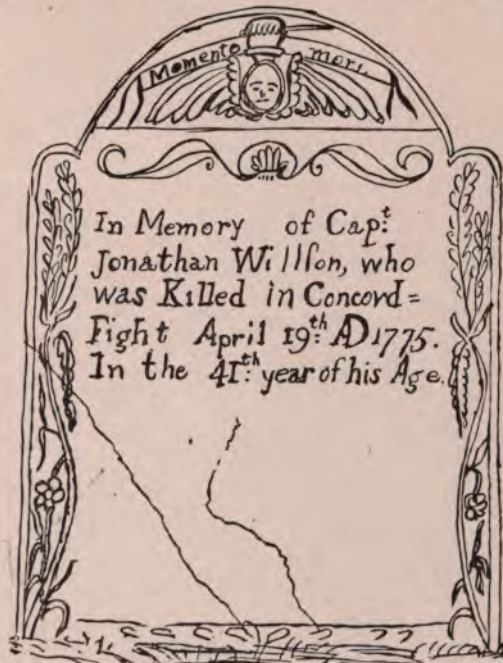 Momento mori.
In Memory of Capt
Jonathan Willſon, who
was Killed in Concord=
Fight April 19th AD 1775.
In the 41th year of his Age.